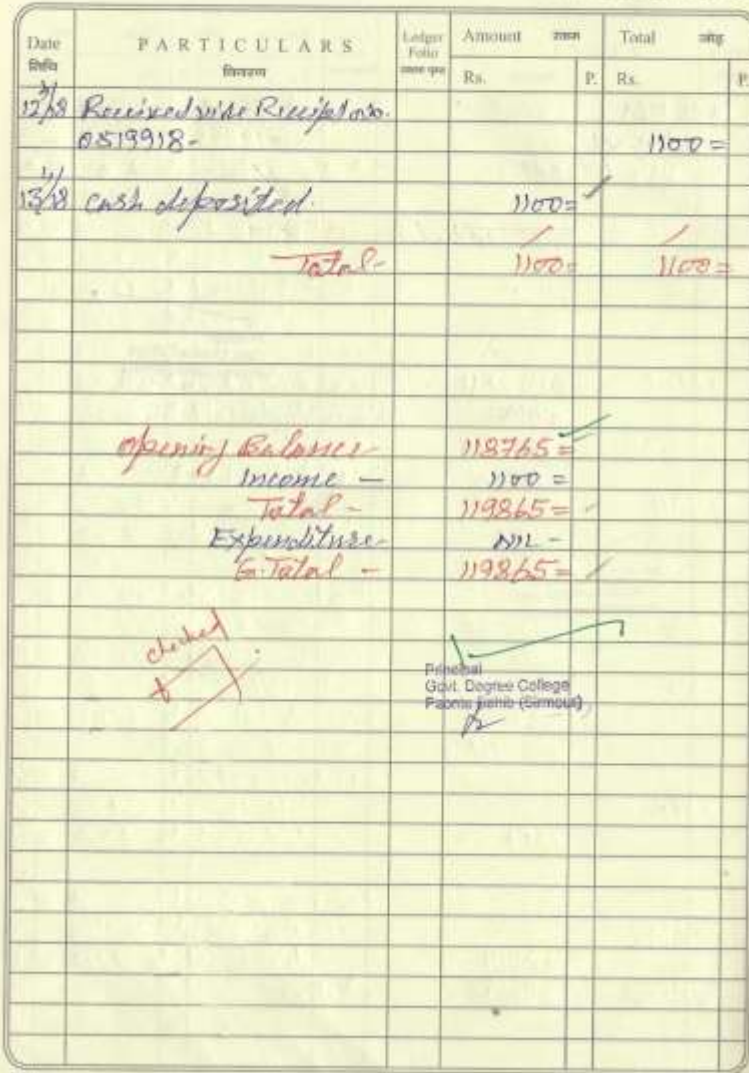 Date PARTICULARS Ledger Folio Amount रकम Total जोड़
तिथि विवरण खाता पृष्ठ Rs. P. Rs. P.
12/18 Received vide Receipt no.
0519918- 1100=
13/18 cash deposited. 1100=
Total- 1100= 1100=
Opening Balance- 118765=
Income - 1100=
Total - 119865=
Expenditure- NIL -
G.Total - 119865=
checked
Principal
Govt. Degree College
Paonta Sahib (Sirmour)